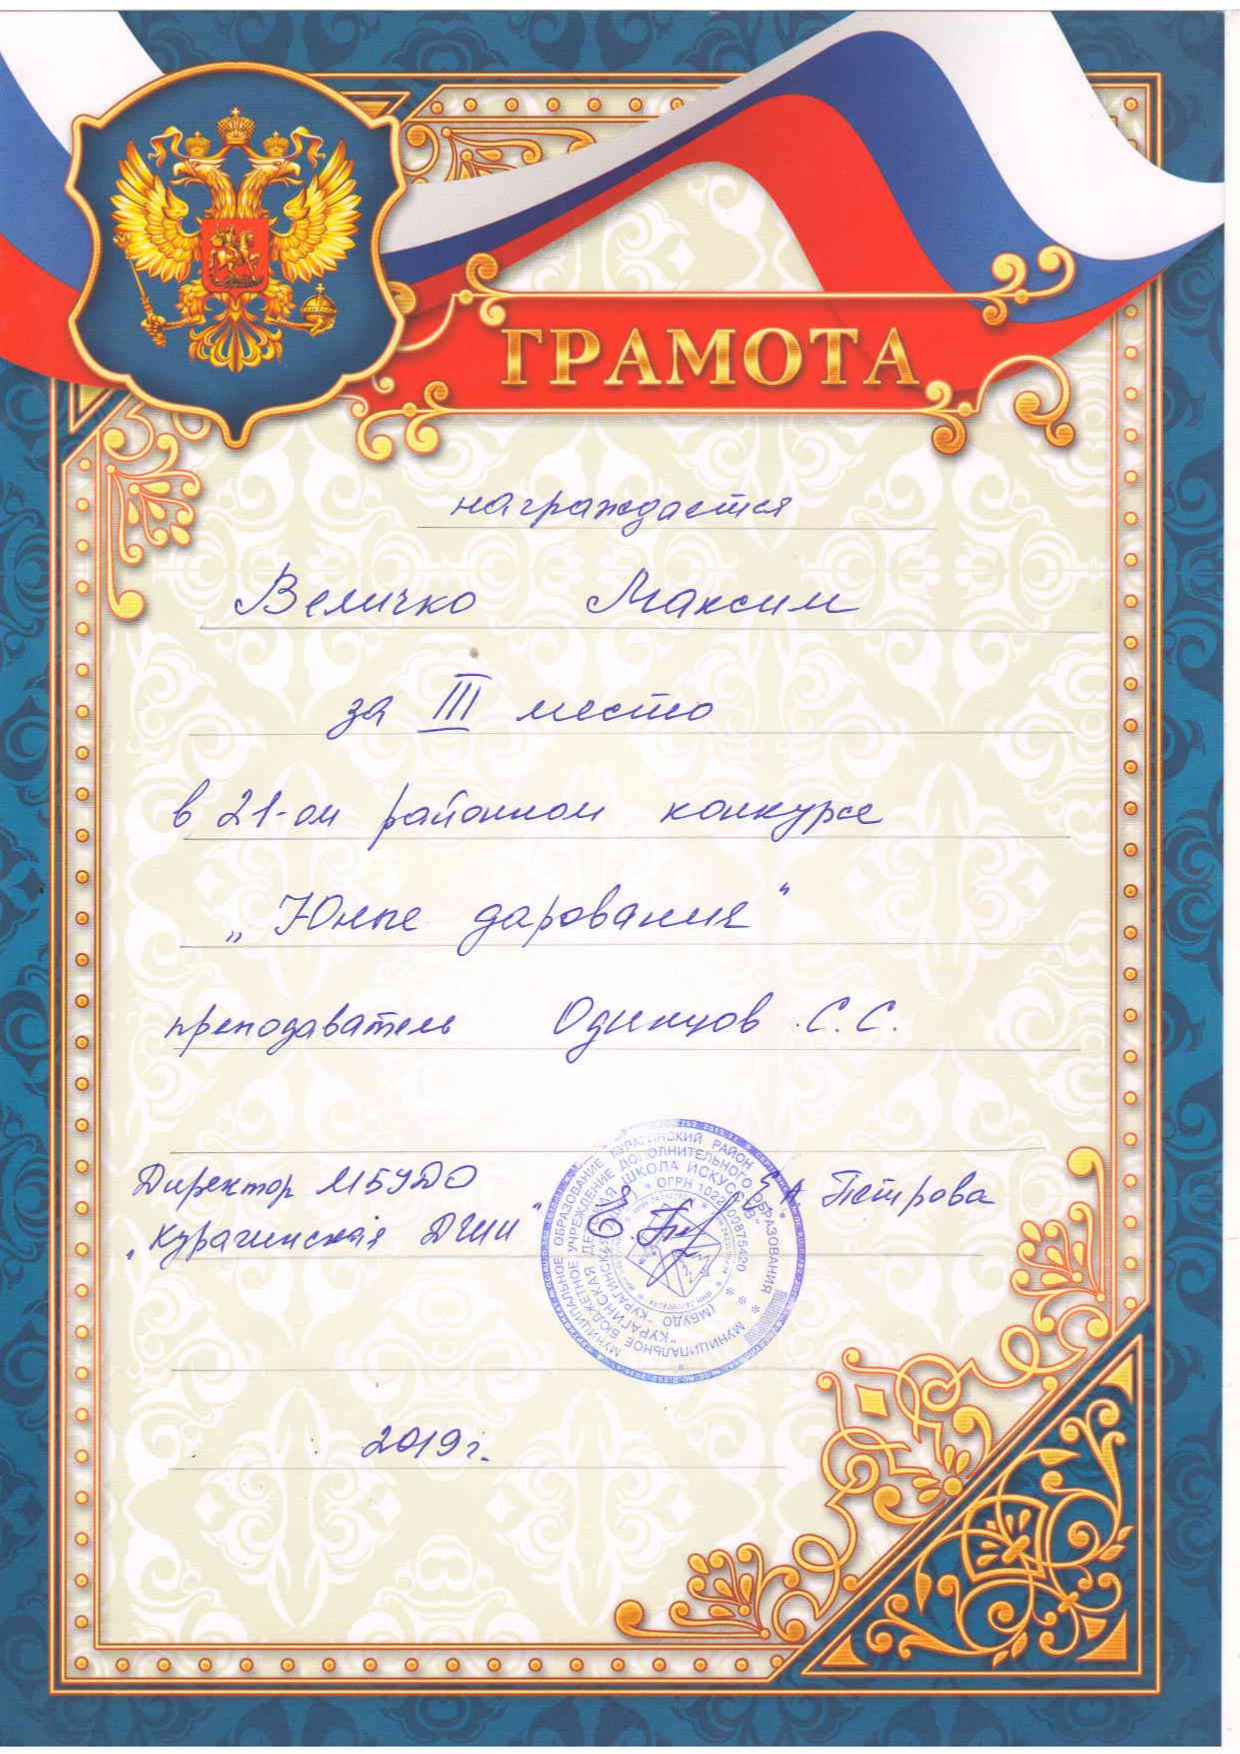 ГРАМОТА
награждается
Величко Максим
за III место
в 21-ом районном конкурсе
„Юные дарования“
преподаватель Одинцов С.С.
Директор МБУДО
„Курагинская ДШИ“
Е А Петрова
МУНИЦИПАЛЬНОЕ ОБРАЗОВАНИЕ КУРАГИНСКИЙ РАЙОН
МУНИЦИПАЛЬНОЕ БЮДЖЕТНОЕ УЧРЕЖДЕНИЕ ДОПОЛНИТЕЛЬНОГО ОБРАЗОВАНИЯ
"КУРАГИНСКАЯ ДЕТСКАЯ ШКОЛА ИСКУССТВ"
(МБУДО "КУРАГИНСКАЯ
ОГРН
2019г.